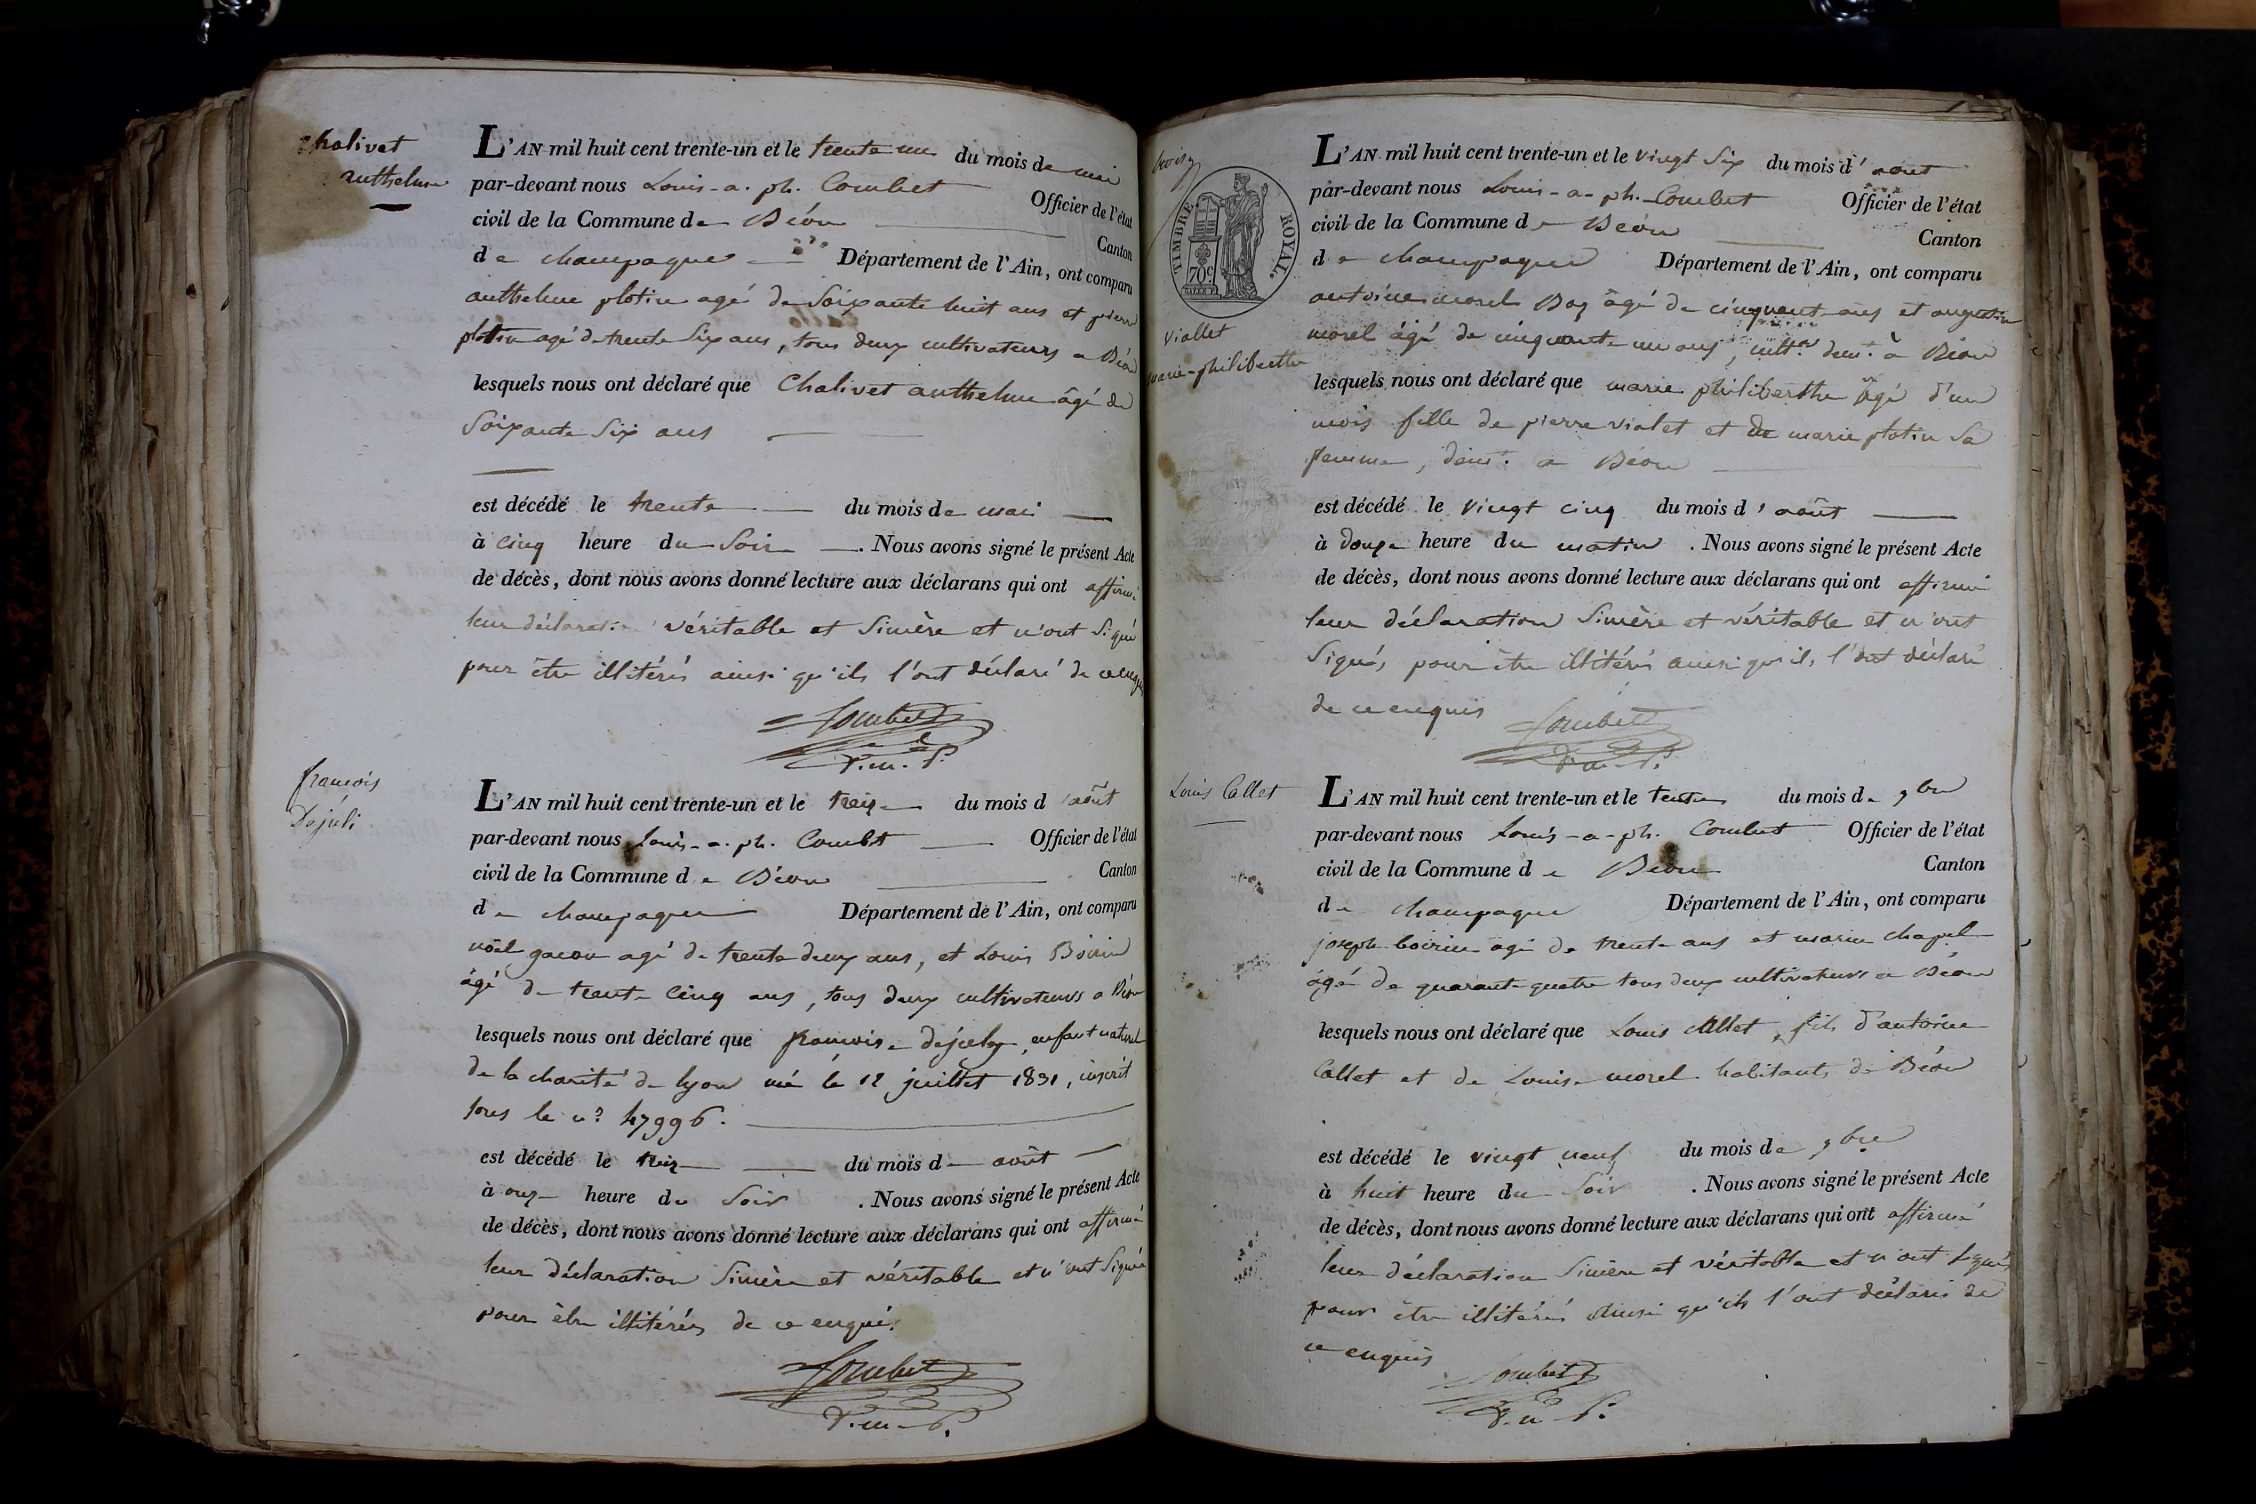 Chalivet
anthelme
L'AN mil huit cent trente-un et le trente un du mois de mai
par-devant nous Louis-a. ph. Combet Officier de l'état
civil de la Commune de Béon Canton
de champagne Département de l'Ain, ont comparu
anthelme plotin agé de soixante huit ans et pierre
plotin agé de trente six ans, tous deux cultivateurs a Béon
lesquels nous ont déclaré que Chalivet anthelme âgé de
soixante six ans
est décédé le trente du mois de mai
à cinq heure du soir . Nous avons signé le présent Acte
de décès, dont nous avons donné lecture aux déclarans qui ont affirmé
leur déclaration véritable et sincère et n'ont signé
pour être illitérés ainsi qu'ils l'ont déclaré de ce enquis
Combet
françois
Dejuli
L'AN mil huit cent trente-un et le treize du mois d'août
par-devant nous Louis-a. ph. Combet Officier de l'état
civil de la Commune de Béon Canton
de champagne Département de l'Ain, ont comparu
noël gacon agé de trente deux ans, et Louis Boirin
âgé de trente cinq ans, tous deux cultivateurs a Béon
lesquels nous ont déclaré que françoise dejuly, enfant naturel
de la charité de lyon né le 12 juillet 1831, inscrit
sous le n° 47996.
est décédé le treize du mois d août
à onze heure du soir . Nous avons signé le présent Acte
de décès, dont nous avons donné lecture aux déclarans qui ont affirmé
leur déclaration sincère et véritable et n'ont signés
pour être illitérés de ce enquis
Combet
TIMBRE ROYAL.
70c
viallet
marie-philiberthe
L'AN mil huit cent trente-un et le vingt six du mois d'aout
par-devant nous Louis-a-ph. Combet Officier de l'état
civil de la Commune de Béon Canton
de champagne Département de l'Ain, ont comparu
antoine morel Boz âgé de cinquante ans et augustin
morel âgé de cinquante un ans, cultrs demt. à Béon
lesquels nous ont déclaré que marie philiberthe agé d'un
mois fille de pierre vialet et de marie plotin sa
femme, demt. a Béon
est décédé le vingt cinq du mois d'août
à douze heure du matin . Nous avons signé le présent Acte
de décès, dont nous avons donné lecture aux déclarans qui ont affirmé
leur déclaration sincère et véritable et n'ont
signés pour être illitérés ainsi qu'ils l'ont déclaré
de ce enquis
Combet
Louis Callet
L'AN mil huit cent trente-un et le trente du mois de 9bre
par-devant nous Louis-a-ph. Combet Officier de l'état
civil de la Commune de Béon Canton
de champagne Département de l'Ain, ont comparu
joseph boirin agé de trente ans et marin chapel
âgé de quarante quatre tous deux cultivateurs a Béon
lesquels nous ont déclaré que Louis Callet, fils d'antoine
Callet et de Louise morel habitants de Béon
est décédé le vingt neuf du mois de 9bre
à huit heure du soir . Nous avons signé le présent Acte
de décès, dont nous avons donné lecture aux déclarans qui ont affirmé
leur déclaration sincère et véritable et n'ont signés
pour être illitérés ainsi qu'ils l'ont déclaré de
ce enquis
Combet